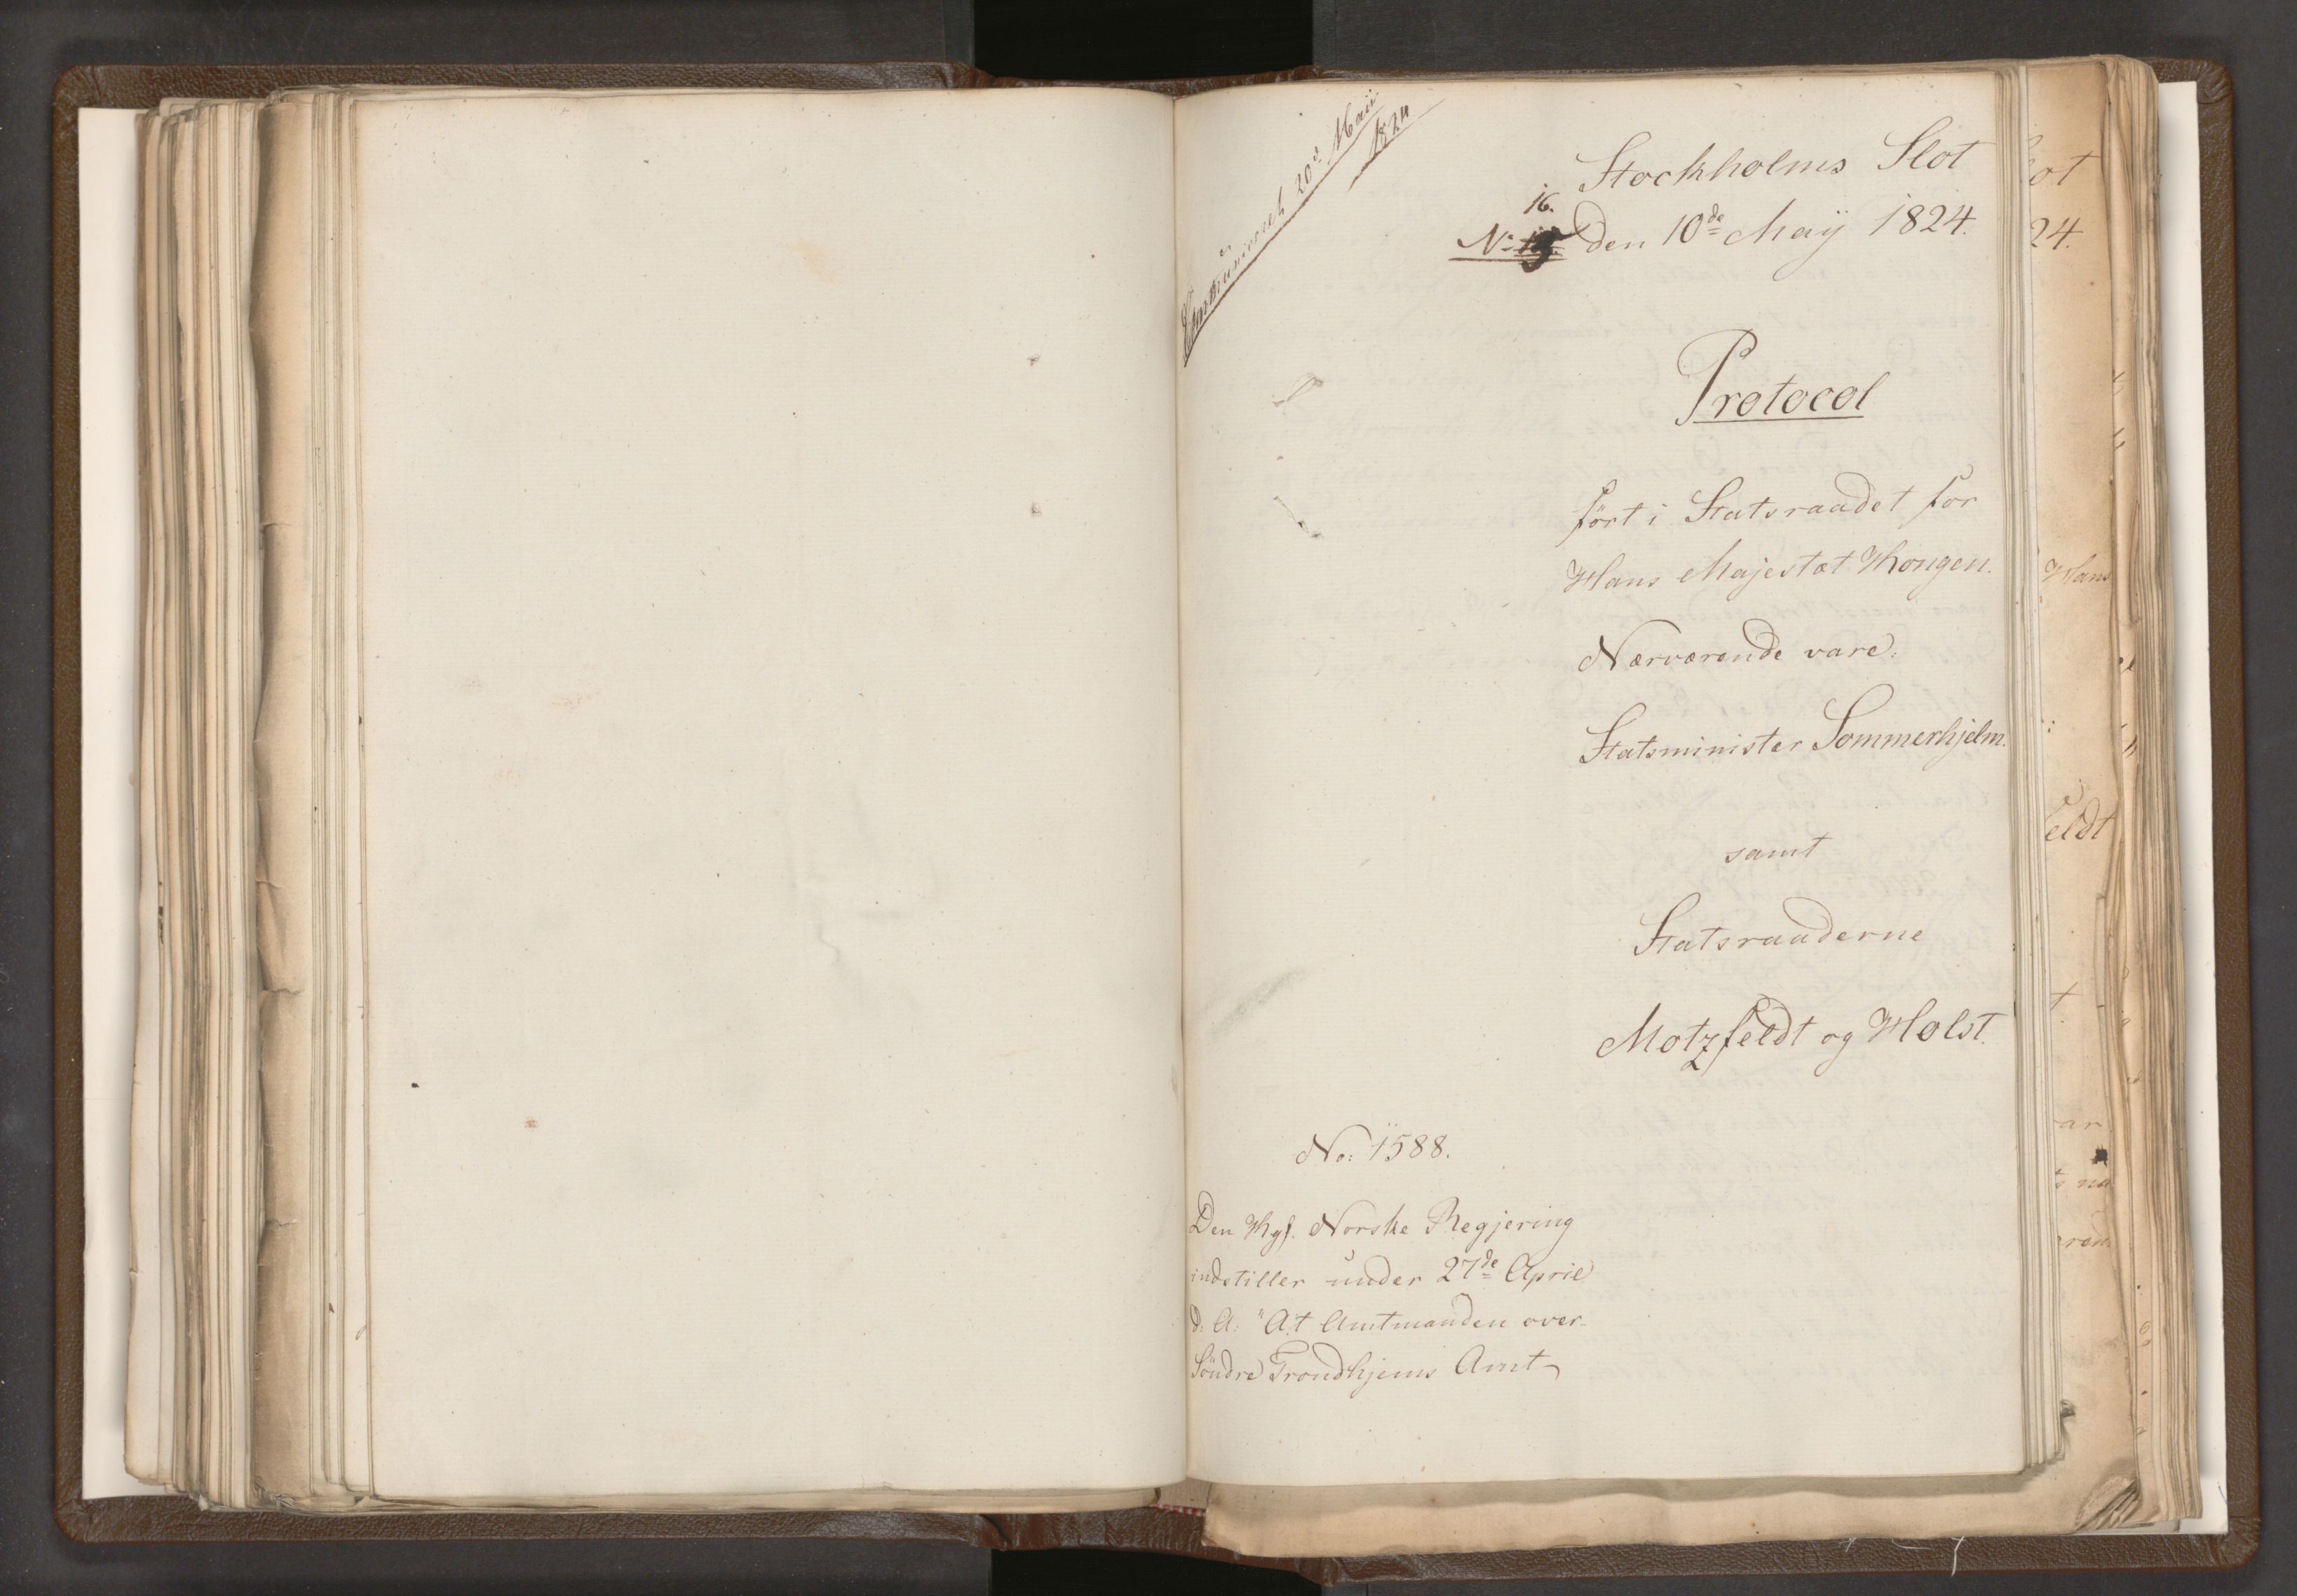 Communiceret 20d Maii
1824
Stockholms Slot
16.
No den 10de Maÿ 1824.
Protocol
ført i Statsraadet for
Hans Majestæt Kongen.
Nærværende vare:
Statsminister Sommerhjelm.
samt
Statsraaderne
Motzfeldt og Holst.
No: 1588.
Den Kgl. Norske Regjering
indstiller under 27de April
d: A: "At Amtmanden over
Söndre Trondhjems Amt
ot
24.
Hans
eldt
ar
na